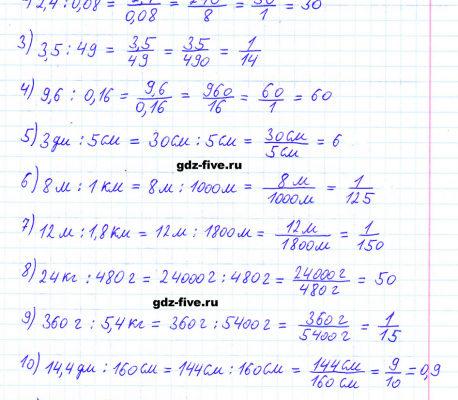 2,4 : 0,08 = 2,4/0,08 = 240/8 = 30/1 = 30
3) 3,5 : 49 = 3,5/49 = 35/490 = 1/14
4) 9,6 : 0,16 = 9,6/0,16 = 960/16 = 60/1 = 60
5) 3 дм : 5 см = 30 см : 5 см = 30 см/5 см = 6
gdz-five.ru
6) 8 м : 1 км = 8 м : 1000 м = 8 м/1000 м = 1/125
7) 12 м : 1,8 км = 12 м : 1800 м = 12 м/1800 м = 1/150
8) 24 кг : 480 г = 24000 г : 480 г = 24000 г/480 г = 50
gdz-five.ru
9) 360 г : 5,4 кг = 360 г : 5400 г = 360 г/5400 г = 1/15
10) 14,4 дм : 160 см = 144 см : 160 см = 144 см/160 см = 9/10 = 0,9